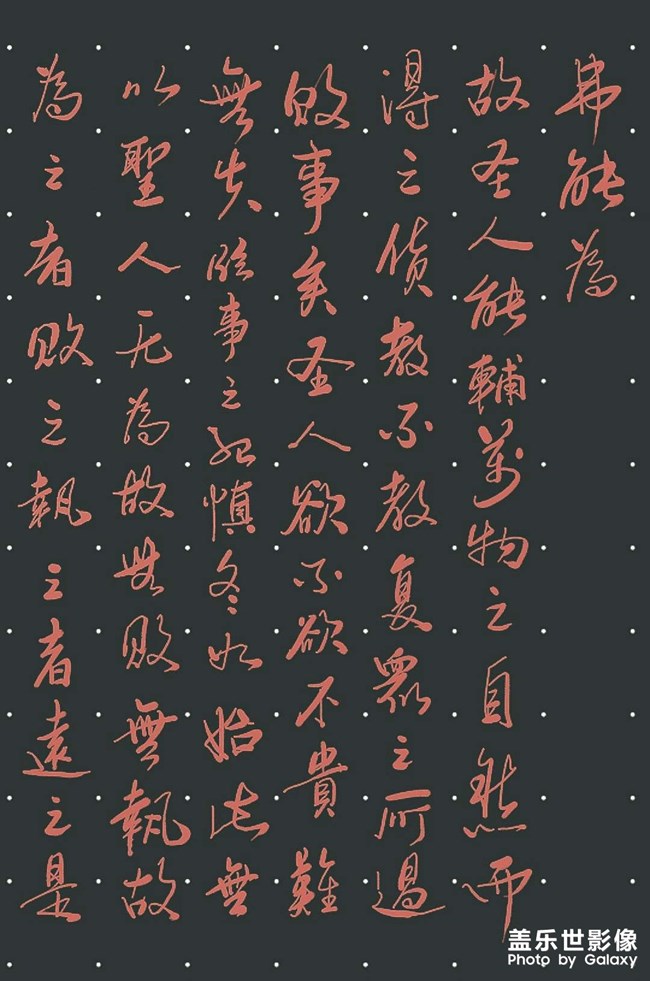 為之者败之執之者遠之是
以聖人无為故無败無執故
無失临事之紀慎冬如始此無
败事矣圣人欲不欲不貴難
得之货教不教复眾之所過
故圣人能輔萬物之自然而
弗能為
盖乐世影像
Photo by Galaxy